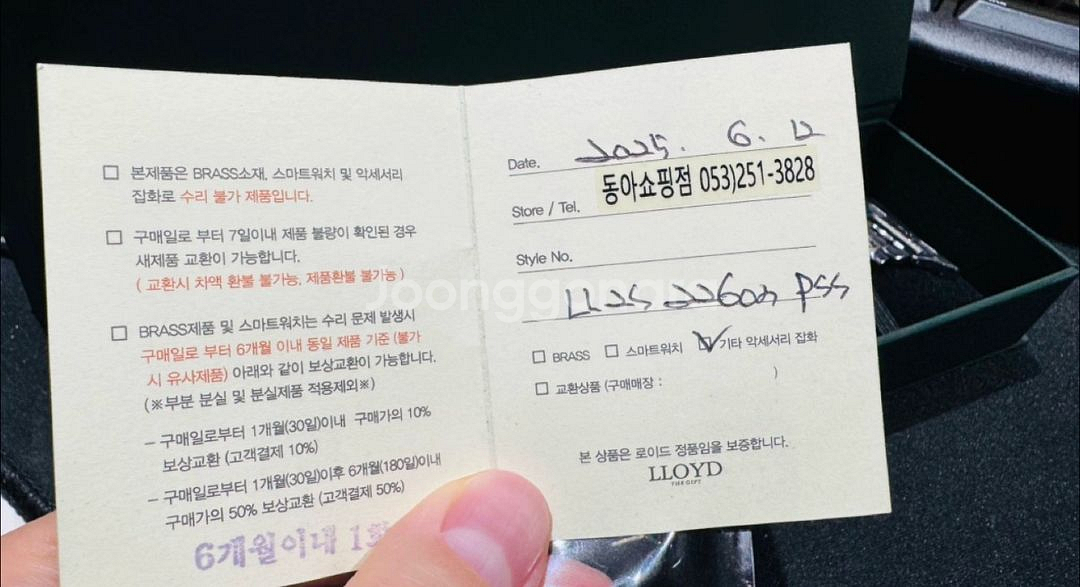 □ 본제품은 BRASS소재, 스마트워치 및 악세서리
잡화로 수리 불가 제품입니다.
□ 구매일로 부터 7일이내 제품 불량이 확인된 경우
새제품 교환이 가능합니다.
( 교환시 차액 환불 불가능, 제품환불 불가능 )
□ BRASS제품 및 스마트워치는 수리 문제 발생시
구매일로 부터 6개월 이내 동일 제품 기준 (불가
시 유사제품) 아래와 같이 보상교환이 가능합니다.
(※부분 분실 및 분실제품 적용제외※)
– 구매일로부터 1개월(30일)이내 구매가의 10%
보상교환 (고객결제 10%)
– 구매일로부터 1개월(30일)이후 6개월(180일)이내
구매가의 50% 보상교환 (고객결제 50%)
6개월이내 1회
Date. 2025. 6. 12
Store / Tel. 동아쇼핑점 053)251-3828
Style No.
LL25 226 PSS
□ BRASS □ 스마트워치 ☑ 기타 악세서리 잡화
□ 교환상품 (구매매장 : )
본 상품은 로이드 정품임을 보증합니다.
LLOYD
THE GIFT